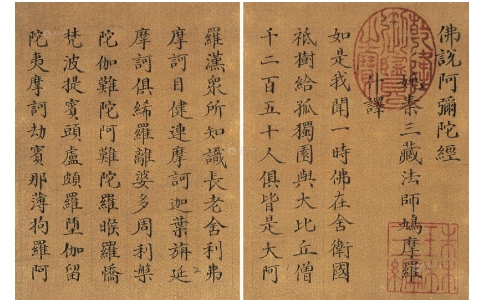 佛說阿彌陀經
姚秦三藏法師鳩摩羅
什譯
如是我聞一時佛在舍衛國
祇樹給孤獨園與大比丘僧
千二百五十人俱皆是大阿
羅漢眾所知識長老舍利弗
摩訶目健連摩訶迦葉旃延
摩訶俱絺羅離婆多周利槃
陀伽難陀阿難陀羅睺羅憍
梵波提賓頭盧頗羅墮伽留
陀夷摩訶劫賓那薄拘羅阿